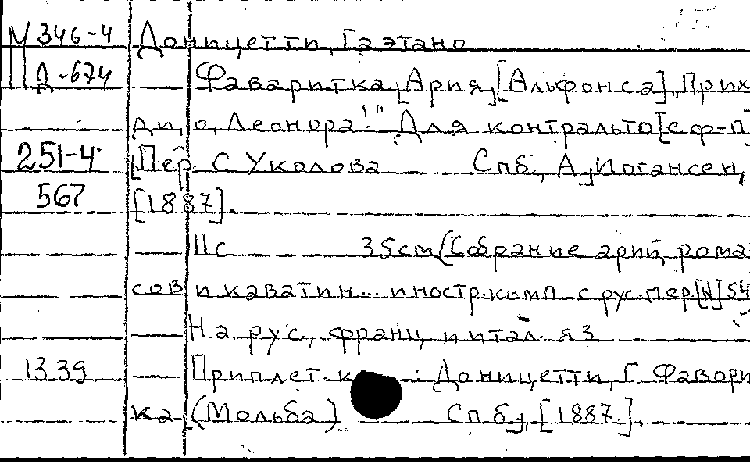 М 346-4 Доницетти, Гаэтано
Д-674 Фаваритка, Ария, [Альфонса], Прих
ди, о, Леонора!" Для контральто [с ф-п]
251-4 Пер. С. Уколова Спб, А. Иогансен,
567 [1887].
11с 35см (Собрание арий, рома
сов и каватин... иностр. комп. с рус. пер. [N] 54
На рус., франц. и итал. яз
1339 Приплет. к : Доницетти, Г. Фавори
ка (Мольба) Спб, [1887].